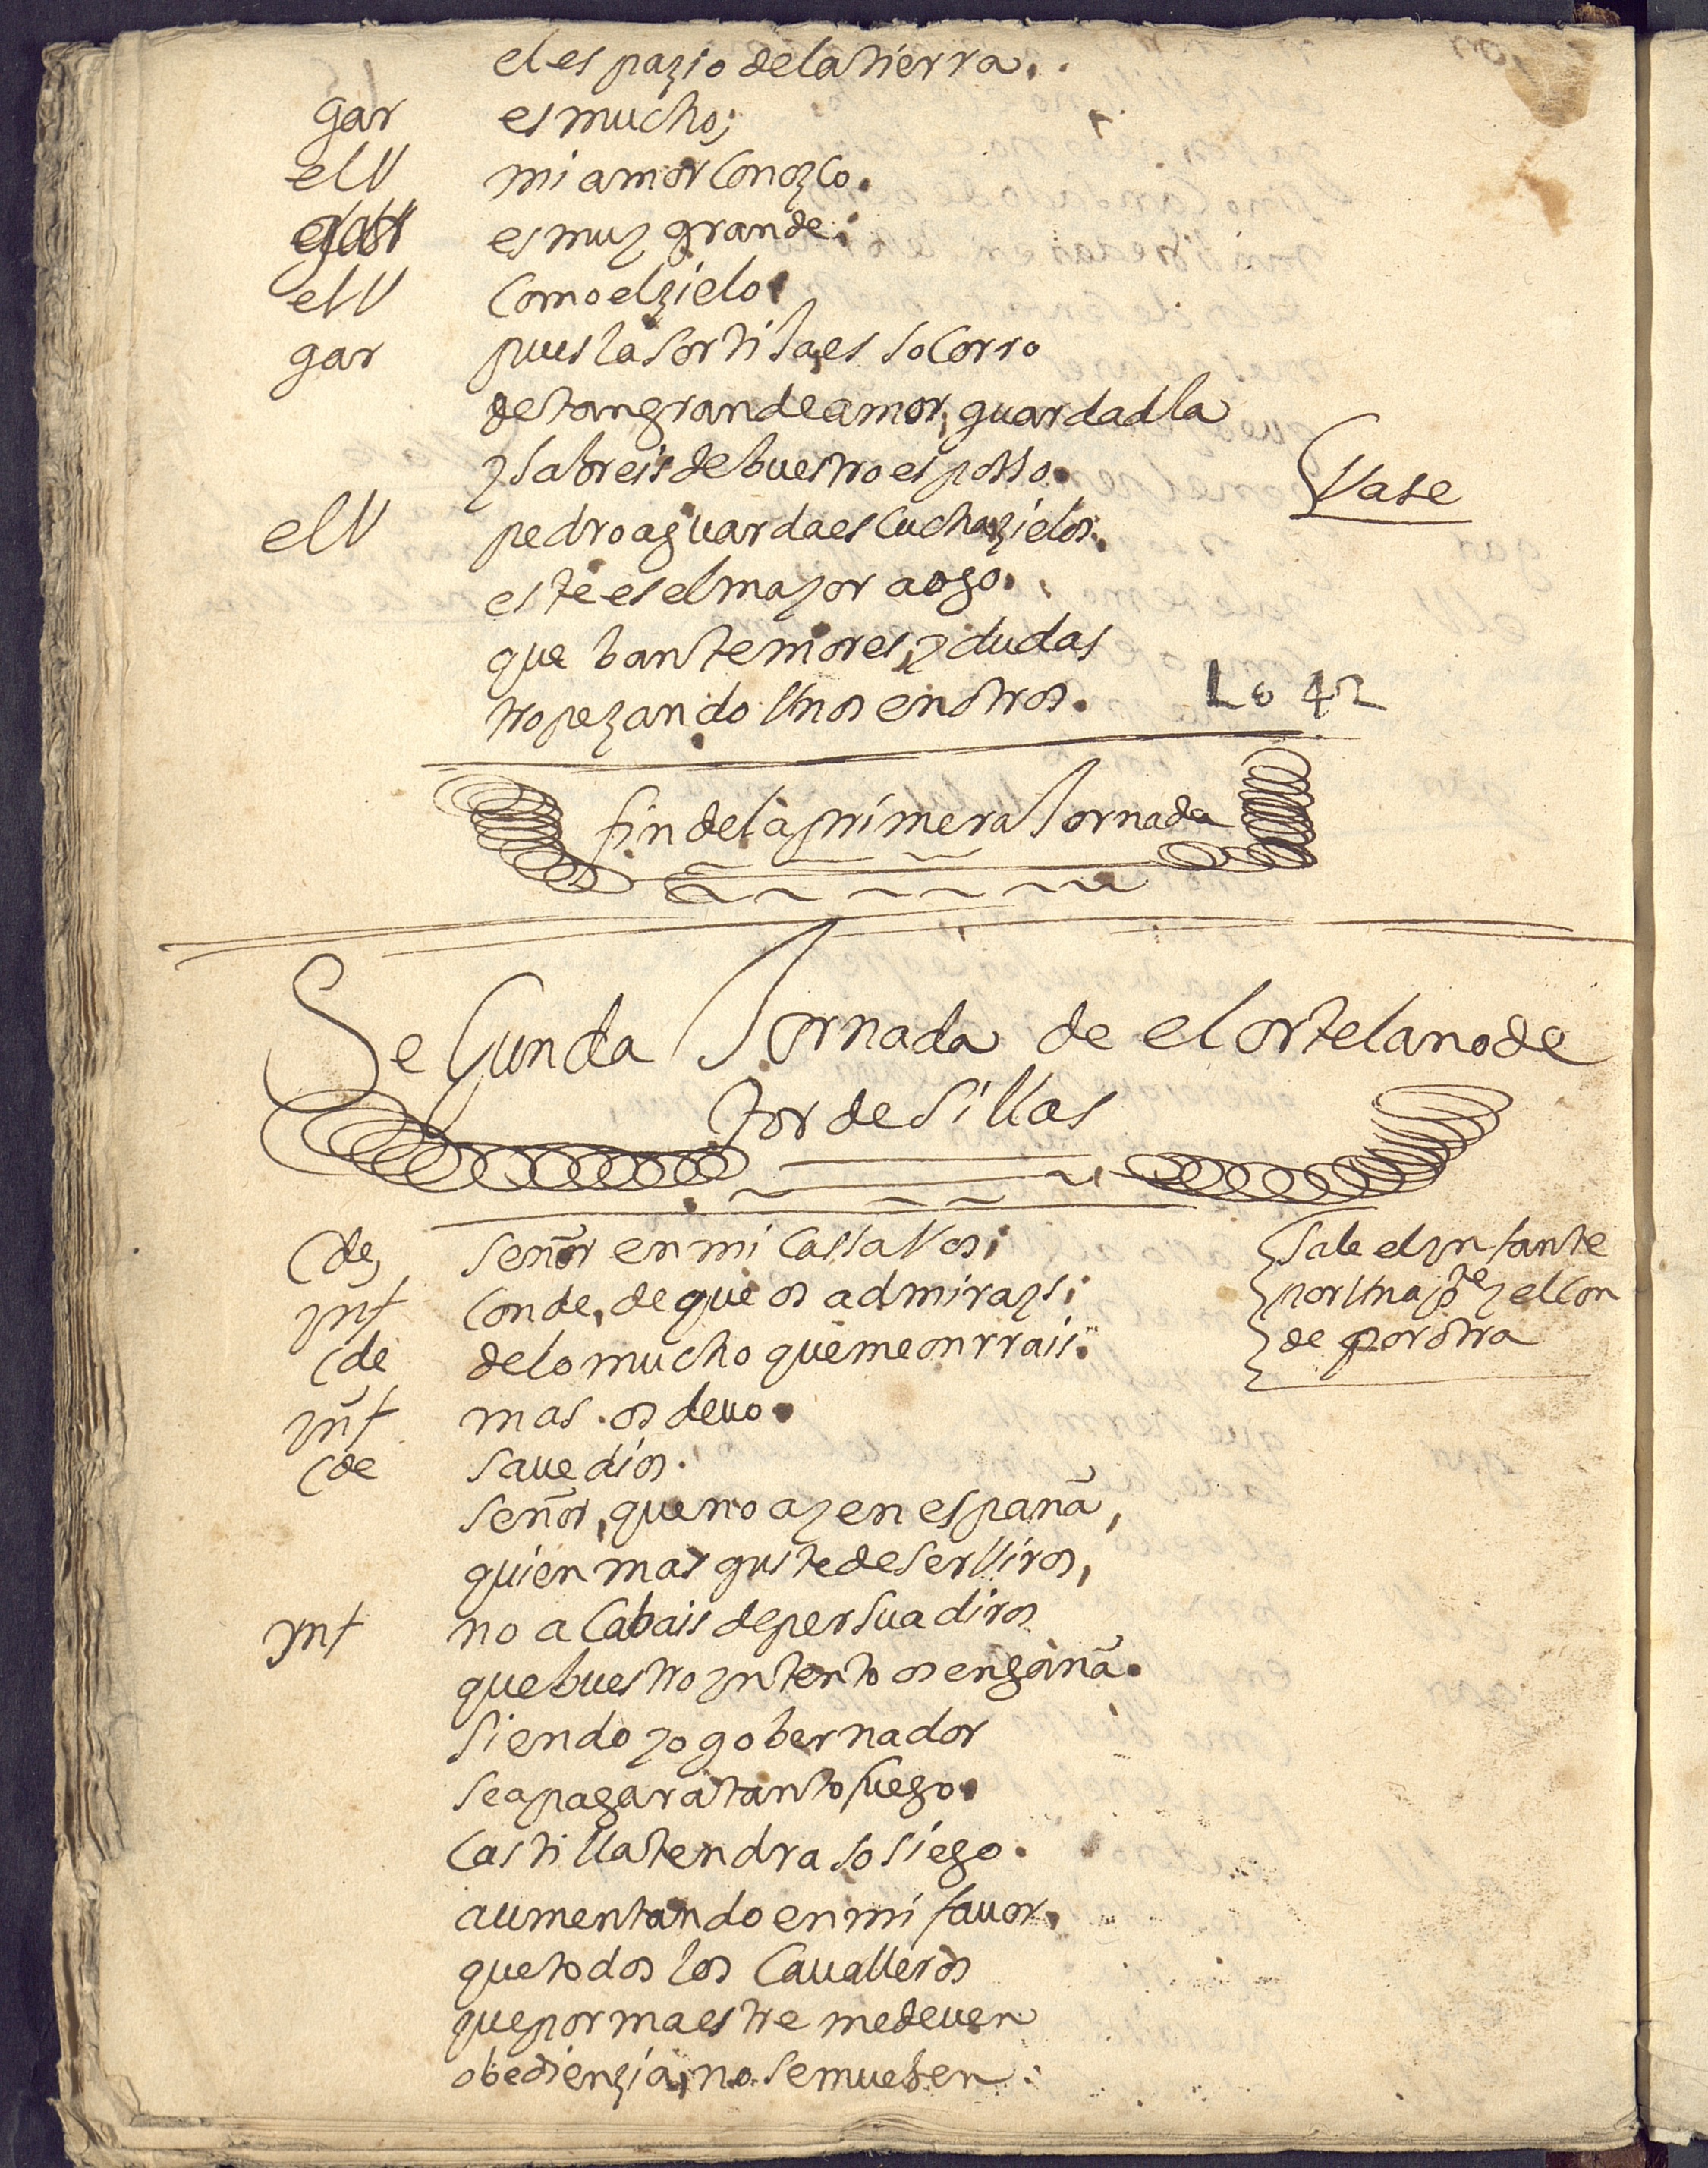 el espazio de la tierra.
gar es mucho;
elv mi amor conozco.
gar es muy grande;
elv como el zielo.
gar pues la sortija es socorro
de tan grande amor, guardadla
y sabreis de buestro esposso. Vase
elv pedro aguarda escucha zielos.
este es el mayor aogo.
que ban temores, y dudas
tropezando Vnos en otros. 1042
fin de la primera Jornada
Segunda Jornada de el ortelano de
tordesillas
Cde, señor en mi cassa Vos; Sale el ynfante
ynf conde, de que os admirays; por Vna pte y el con
Cde de lo mucho que me onrrais. de por otra
ynf mas os deuo.
Cde saue dios.
señor, que no ay en españa,
quien mas guste de serViros,
ynf no acabais de persuadiros
que buestro yntento os engaña.
siendo yo gobernador
se apagara tanto fuego.
castilla tendra sosiego.
aumentando en mi fauor,
que todos los caualleros
que por maestre me deuen
obedienzia, no se mueben.